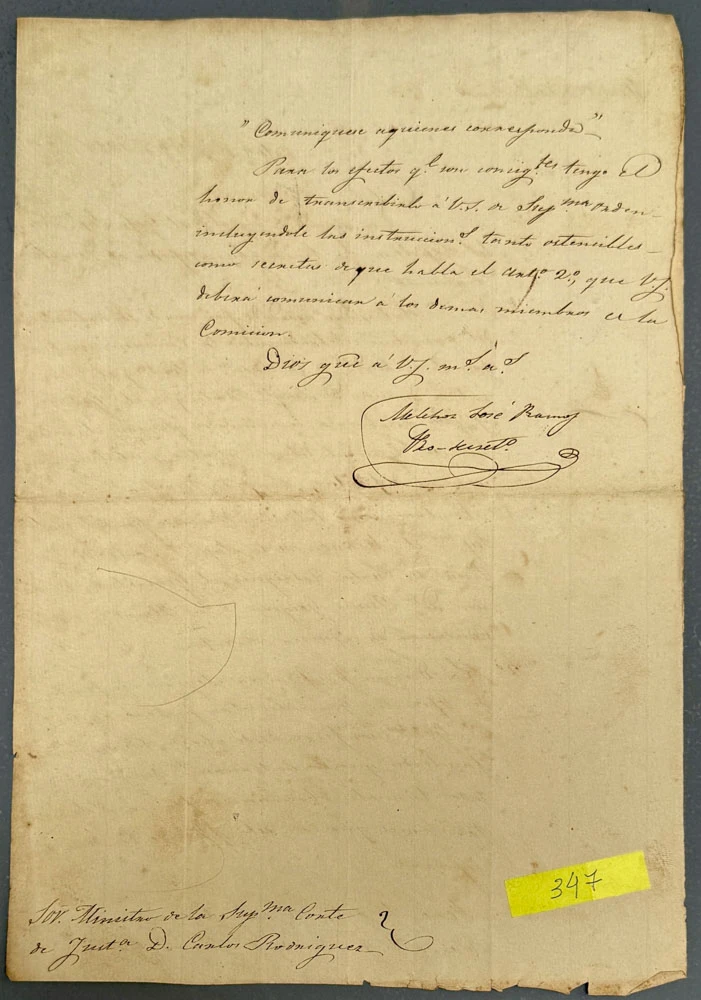 "Comuniquese a quienes corresponda"
Para los efectos q.e son consig.tes tengo el
honor de transcribirlo á V.S. de Sup.ma orden
incluyendole las instruccion.s tanto ostencibles
como secretas de que habla el art.o 2.o, que V.S.
deberá comunicar á los demas miembros de la
Comicion.
Dios gue á V.S. m.s a.s
Melchor José Ramos
Pro-Secret.o
Sor. Ministro de la Sup.ma Corte
de Just.a D. Carlos Rodriguez
347